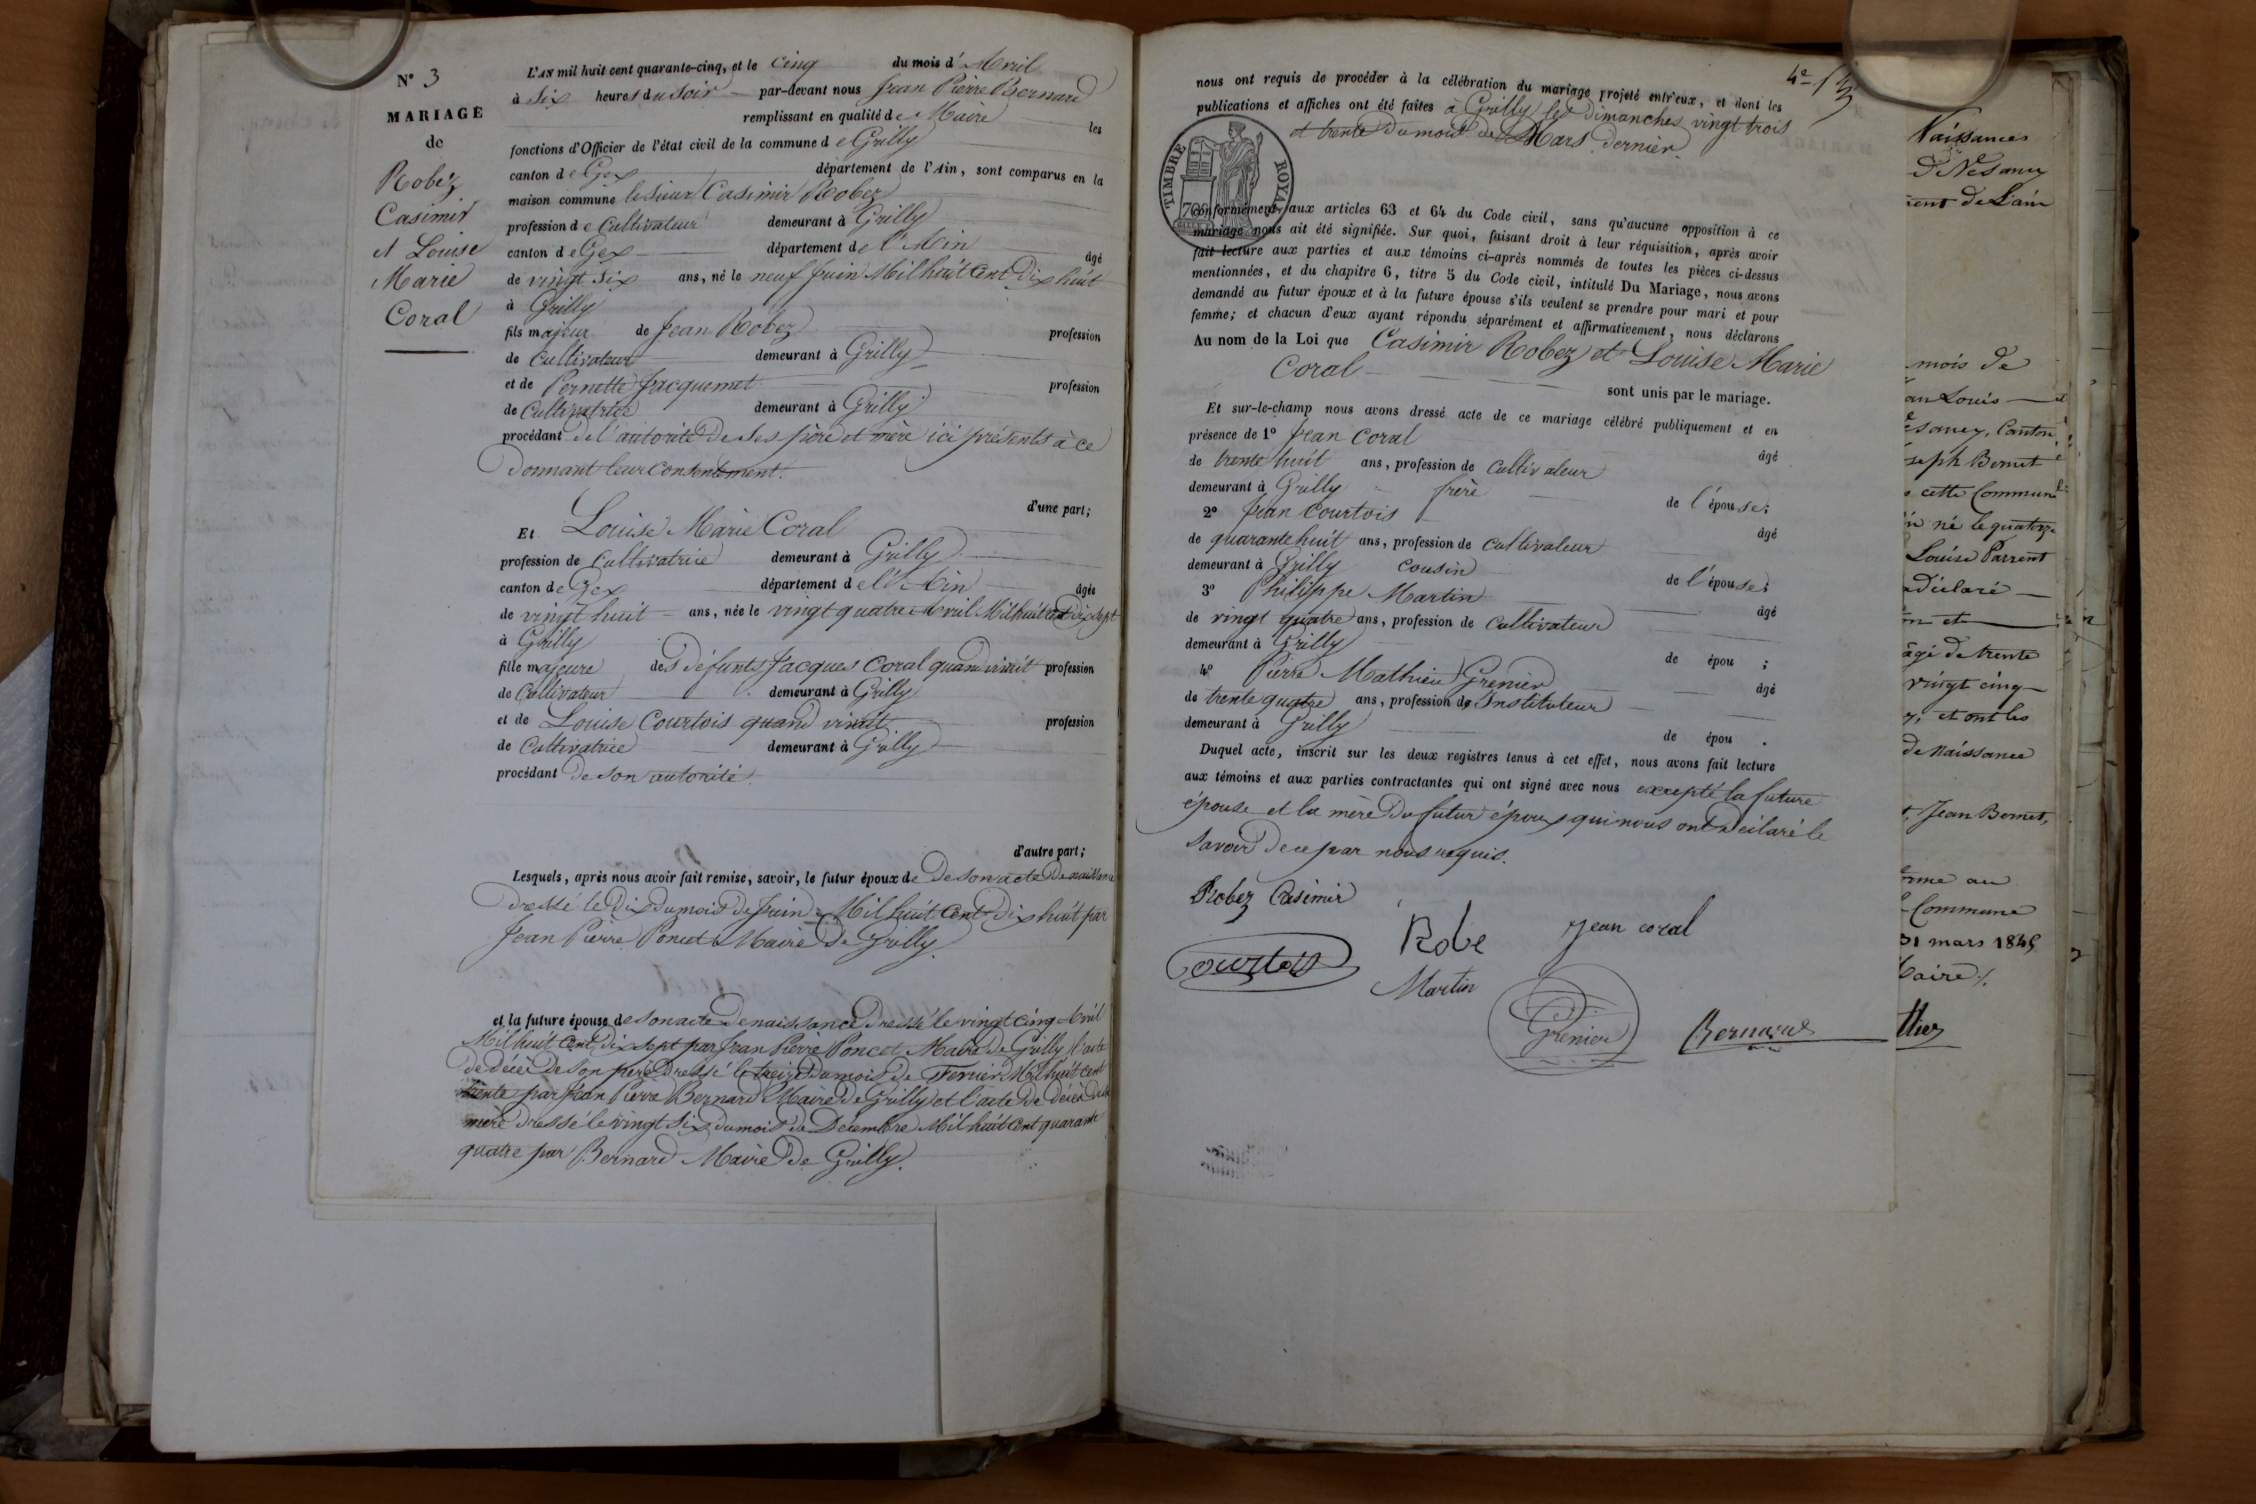 N° 3
MARIAGE
de
Robez
Casimir
et Louise
Marie
Coral
L'AN mil huit cent quarante-cinq, et le cinq du mois d'Avril
à six heures du soir par-devant nous Jean Pierre Bernard
remplissant en qualité de Maire les
fonctions d'Officier de l'état civil de la commune de Grilly
canton de Gex département de l'Ain, sont comparus en la
maison commune le sieur Casimir Robez
profession de Cultivateur demeurant à Grilly
canton de Gex département de l'Ain âgé
de vingt six ans, né le neuf Juin Mil huit Cent Dix huit
à Grilly
fils majeur de Jean Robez profession
de Cultivateur demeurant à Grilly
et de Pernette Jacquemet profession
de Cultivatrice demeurant à Grilly
procédant de l'autorité de ses père et mère ici présents à ce
Donnant leur consentement.
d'une part;
Et Louise Marie Coral
profession de Cultivatrice demeurant à Grilly
canton de Gex département de l'Ain âgée
de vingt huit ans, née le vingt quatre Avril Mil huit Cent dix sept
à Grilly
fille majeure des défunts Jacques Coral quand vivait profession
de Cultivateur demeurant à Grilly
et de Louise Courtois quand vivait profession
de Cultivatrice demeurant à Grilly
procédant de son autorité
d'autre part;
Lesquels, après nous avoir fait remise, savoir, le futur époux de De son acte De naissance
Dressé le Dix du mois de Juin Mil huit Cent Dix huit par
Jean Pierre Poncet Maire De Grilly.
et la future épouse de son acte De naissance Dressé le vingt cinq Avril
Mil huit Cent dix sept par Jean Pierre Poncet Maire De Grilly l'acte
De décès De son père Dressé le treize du mois de Fevrier Mil huit cent
trente par Jean Pierre Bernard Maire de Grilly et l'acte De décès de sa
mère dressé le vingt six du mois de Décembre Mil huit Cent quarante
quatre par Bernard Maire De Grilly.
nous ont requis de procéder à la célébration du mariage projeté entr'eux, et dont les
publications et affiches ont été faites à Grilly les Dimanches vingt trois
et trente Du mois de Mars dernier.
TIMBRE ROYAL
conformément aux articles 63 et 64 du Code civil, sans qu'aucune opposition à ce
mariage nous ait été signifiée. Sur quoi, faisant droit à leur réquisition, après avoir
fait lecture aux parties et aux témoins ci-après nommés de toutes les pièces ci-dessus
mentionnées, et du chapitre 6, titre 5 du Code civil, intitulé Du Mariage, nous avons
demandé au futur époux et à la future épouse s'ils veulent se prendre pour mari et pour
femme; et chacun d'eux ayant répondu séparément et affirmativement, nous déclarons
Au nom de la Loi que Casimir Robez et Louise Marie
Coral
sont unis par le mariage.
Et sur-le-champ nous avons dressé acte de ce mariage célébré publiquement et en
présence de 1° Jean Coral âgé
de trente huit ans, profession de Cultivateur
demeurant à Grilly frère de l'épouse;
2° Jean Courtois âgé
de quarante huit ans, profession de Cultivateur
demeurant à Grilly cousin de l'épouse;
3° Philippe Martin âgé
de vingt quatre ans, profession de Cultivateur
demeurant à Grilly de épou ;
4° Pierre Mathieu Grenier âgé
de trente quatre ans, profession de Instituteur
demeurant à Grilly de épou .
Duquel acte, inscrit sur les deux registres tenus à cet effet, nous avons fait lecture
aux témoins et aux parties contractantes qui ont signé avec nous excepté la future
épouse et la mère Du futur époux qui nous ont Déclaré le
savoir De ce par nous requis.
Robez Casimir
Robe
Jean coral
Courtois
Martin
Grenier
Bernard
Naissances
mois de
an Louis
Canton
seph Bornet
cette Commune
né le quatorze
Louise Parrent
déclaré
et
âgé de trente
vingt cinq
et ont les
de naissance
Jean Bornet,
Commune
31 mars 1845
Maire